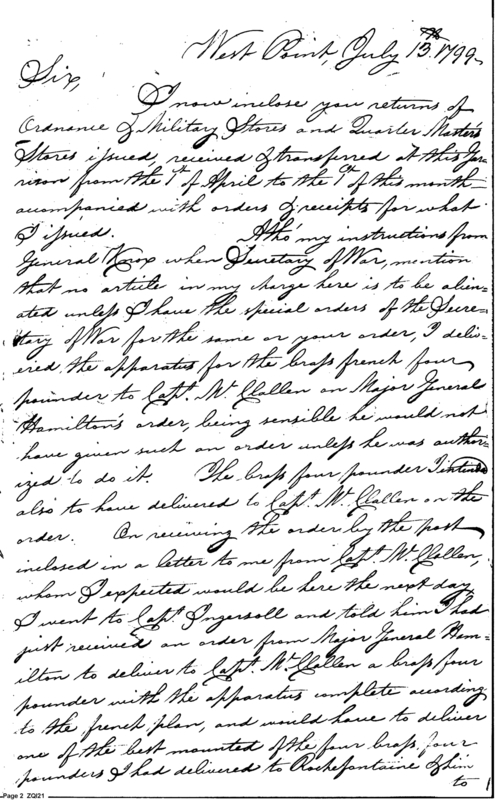 West Point, July 13th. 1799.
Sir,
I now inclose you returns of
Ordnance & Military Stores and Quarter Master's
Stores issued, received & transferred at this Gar-
rison from the 1st of April to the 1st of this month
accompanied with orders & receipts for what
I issued. Altho' my instructions from
General Knox when Secretary of War, mention
that no article in my charge here is to be alien-
ated unless I have the special orders of the Secre-
tary of War for the same or your order, I deliv-
ered the apparatus for the brass french four
pounder to Capt. McClallen on Major General
Hamilton's order, being sensible he would not
have given such an order unless he was author-
ized to do it. The brass four pounder I intended
also to have delivered to Capt. McClallen on the
order. On receiving the order by the post
inclosed in a letter to me from Capt. McClallen,
whom I expected would be here the next day,
I went to Capt. Ingersoll and told him I had
just received an order from Major General Ham-
ilton to deliver to Capt. McClallen a brass four
pounder with the apparatus complete according
to the french plan, and would have to deliver
one of the best mounted of the four brass four
pounders I had delivered to Rochefontaine & him
to
Page 2 ZQI21